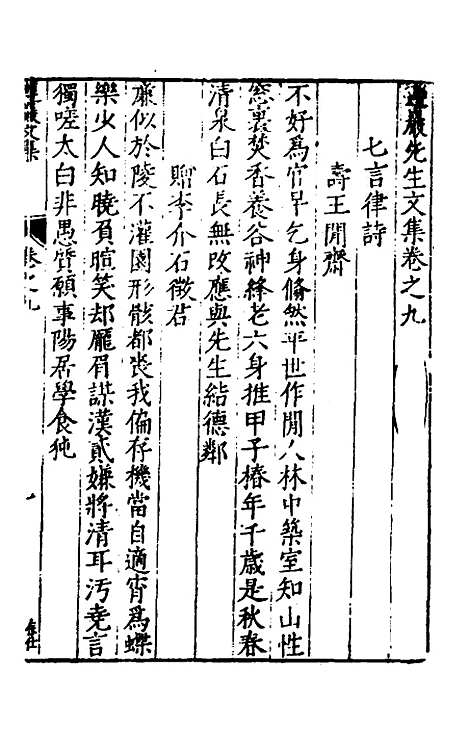 遵巖先生文集卷之九
七言律詩
壽王閒齋
不好為官早乞身翛然平世作閒人林中築室知山性
窓裏焚香養谷神絳老六身推甲子椿年千歲是秋春
清泉白石長無改應與先生結德鄰
贈李介石徵君
廉似於陵不灌園形骸都喪我偏存機當自適宵為蝶
樂少人知曉負暄笑却龐眉謀漢貳嫌將清耳汚堯言
獨嗟太白非愚贊願事陽居學食㹠
卷之九
一